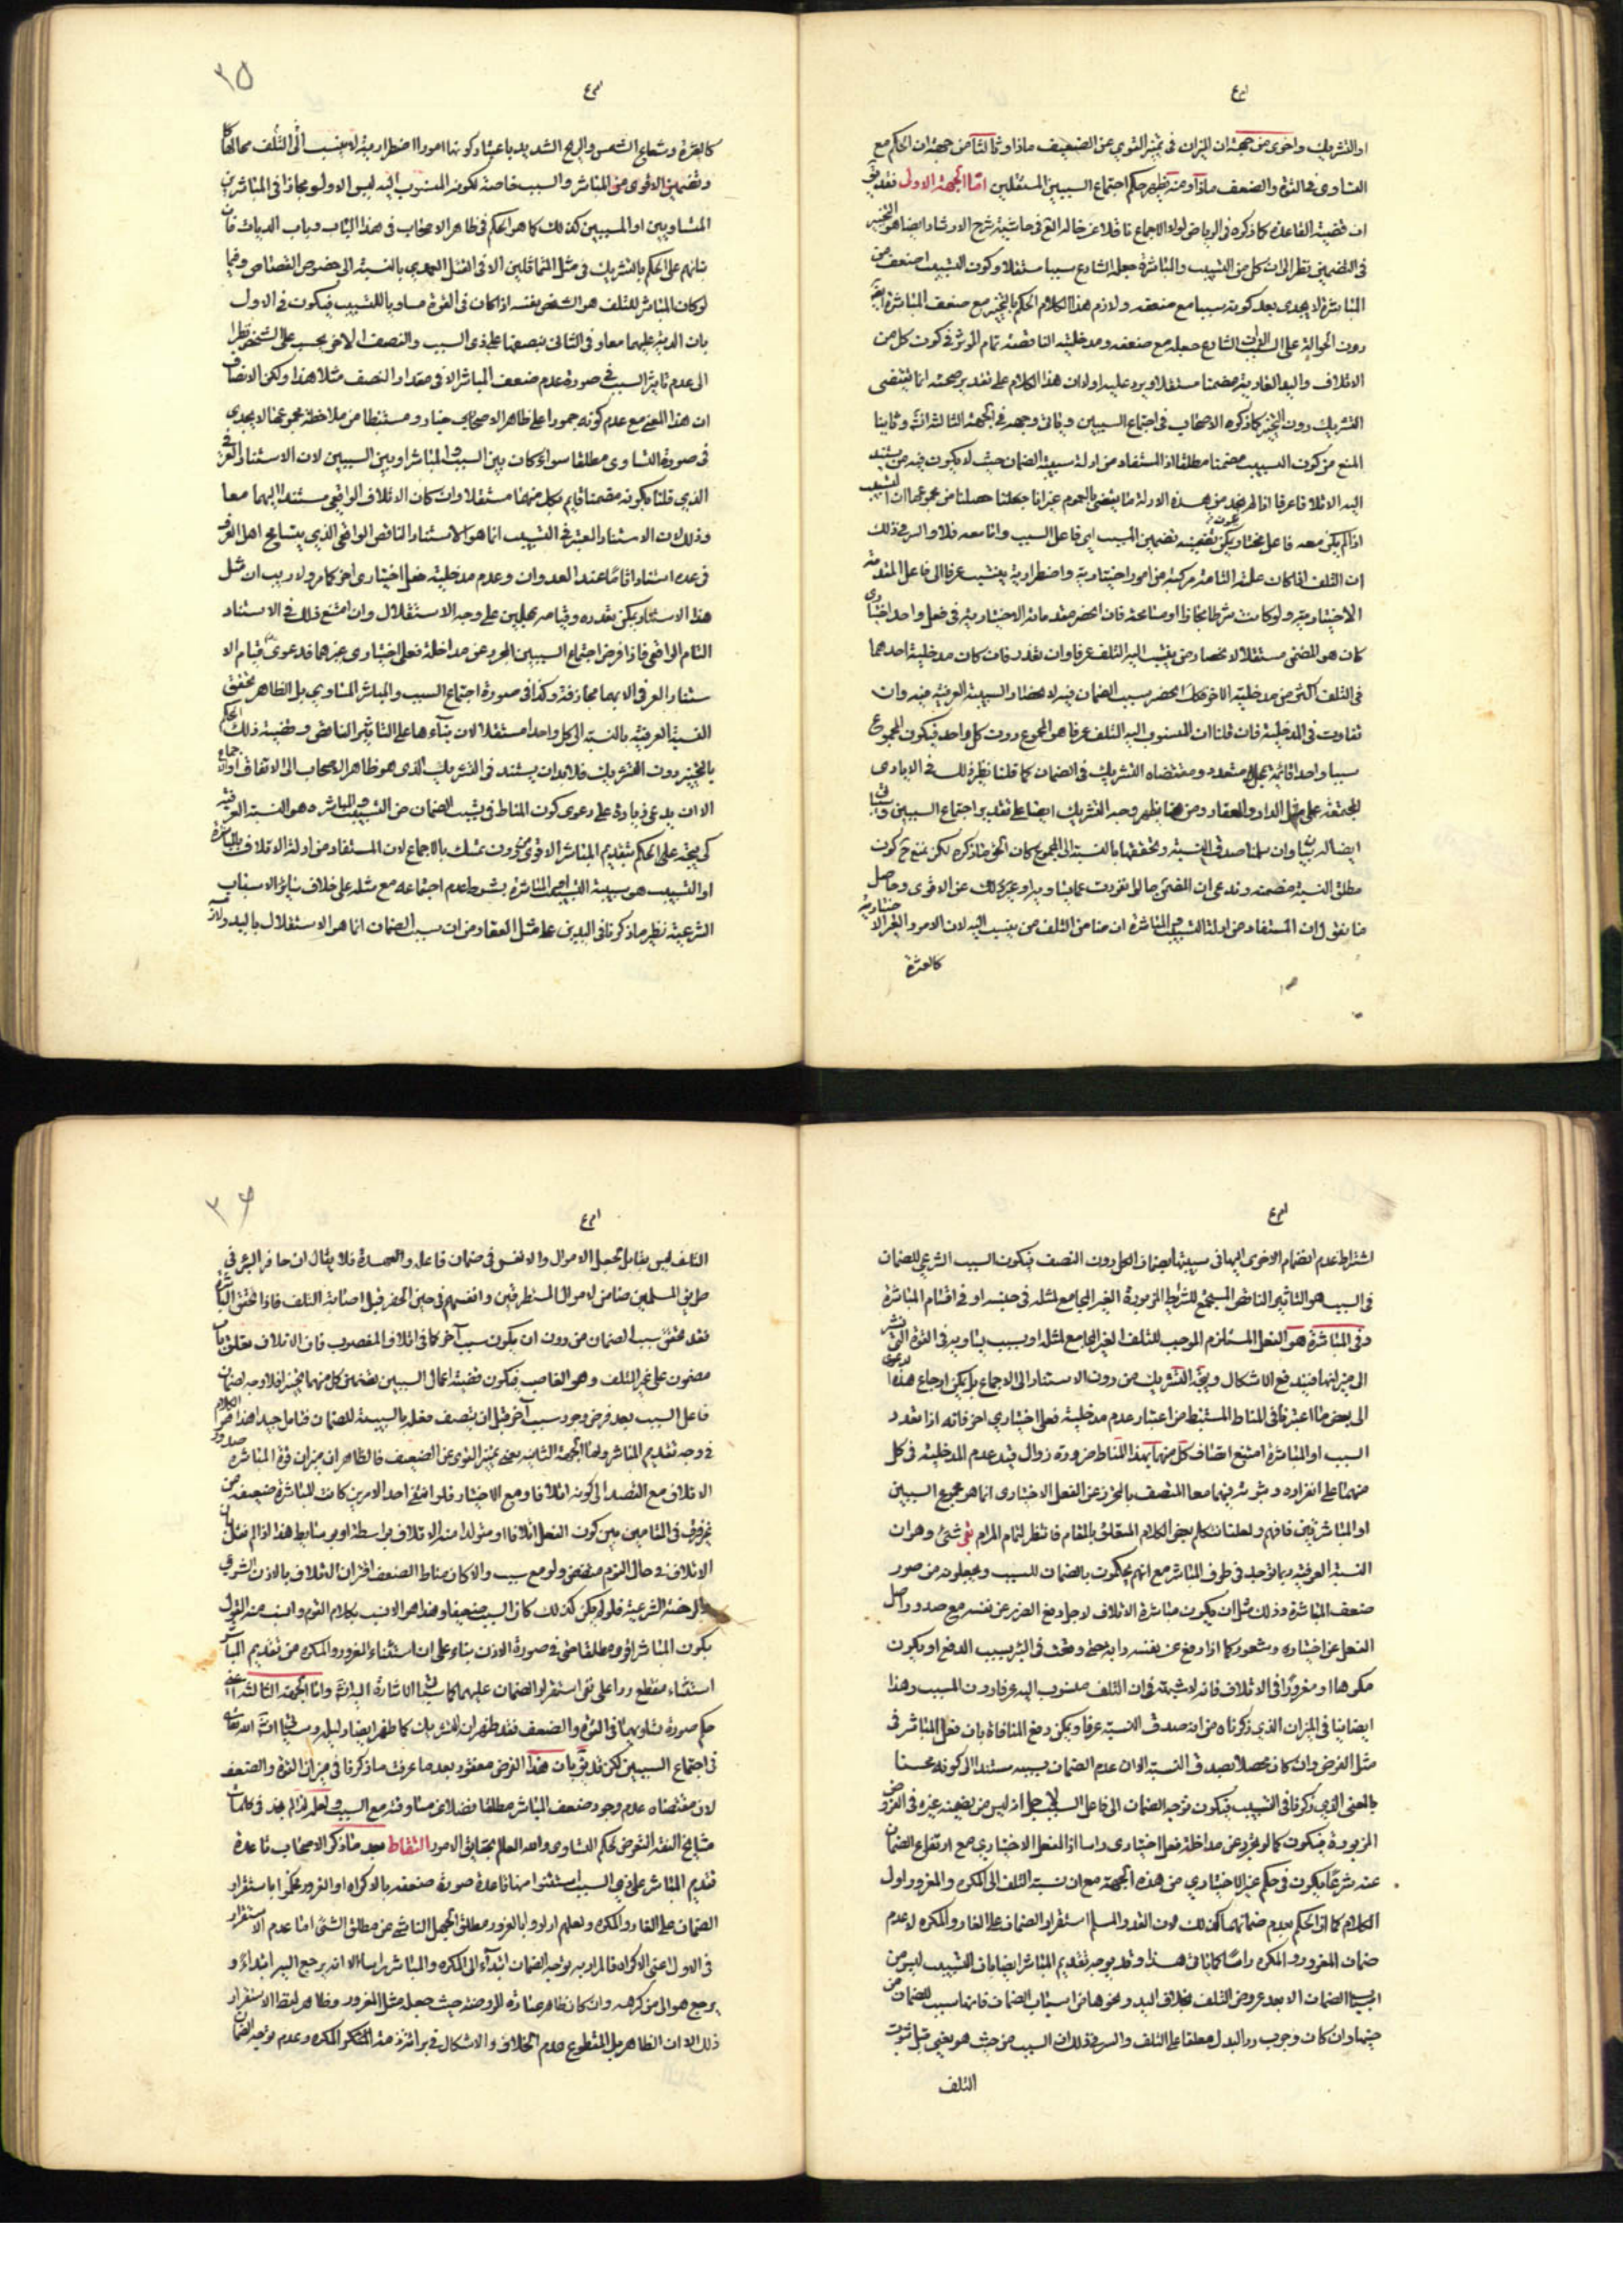 او التشريك واخرى من جهة ان الميزان فى تميز القوي من الضعيف ماذا وثالثا من جهة ان الحكم مع
التساوى فى القوة والضعف ماذا ومنه يظهر حكم اجتماع السببين المستقلين امّا الجهة الاولى فقد يق
ان قضية القاعدة كما ذكره فى الرياض لولا الاجماع ناقلا عن خاله العلامة فى حاشية شرح الارشاد ايضا هو التخيير
فى التضمين نظرا الى ان كل من التسبيب والمباشرة جعله الشارع سببا مستقلا وكون التسبيب اضعف من
المباشرة لا يجدى بعد كونه سببا مع ضعفه ولازم هذا الكلام الحكم بالتخيير مع ضعف المباشرة ايضا
دون الحوالة على السبب الشارع جعله مع ضعفه ومدخليته الناقصة تمام المؤثر فى كون كل من
الاتلاف واليد العادية مضمنا مستقلا ويرد عليه اولا ان هذا الكلام على تقدير صحته انما يقتضى
التشريك دون التخيير كما ذكره الاصحاب فى اجتماع السببين وياتى وجهه فى الجهة الثالثة انشاء الله وثانيا
المنع من كون السبب مضمنا مطلقا اذ المستفاد من ادلة سببية الضمان حيث لا يكون فيه من يستند
اليه الاتلاف عرفا اذ لم نجد من هذه الادلة ما يقتضى بالعموم غير انا جعلنا حصلنا من مجموعها ان التسبيب
اذا لم يكن معه فاعل مختار يمكن تضمينه تضمين المسبب اى فاعل السبب واما معه فلا والسر فى ذلك
ان التلف اذا كان علته التامة مركبة من امور اختيارية واضطرارية ينتسب عرفا الى فاعل المقدمة
الاختيارية ولو كانت شرطا مجازا او مسامحة فان انحصر مقدماته الاختيارية فى فعل واحد اختيارى
كان هو المضمن مستقلا لانحصار من ينتسب اليه التلف عرفا وان تعدد فان كان مدخلية احدهما
فى التلف اكثر من مدخلية الاخر فكذلك انحصر سبب الضمان فيه لانحصار السببية العرفية فيه وان
تفاوت فى المدخلية فان قلنا ان المنسوب اليه التلف عرفا هو المجموع دون كل واحد فيكون المجموع
سببا واحدا قائمة بمحل متعدد ومقتضاه التشريك فى الضمان كما قلنا نظير ذلك فى الايادى
المجتمعة على مثل الدار والعقار ومن هنا يظهر وجه التشريك ايضا على تقدير اجتماع السببين وسياتى
ايضا له بيان وان سلمنا صدق النسبة وتحققها بالنسبة الى المجموع كان الحق ما ذكره لكن نمنع ح كون
مطلق النسبة مضمنه وندعى ان المضمن حالو تفردت عما يساويه او غير ذلك عن الاقوى وحاصل
ما نقول ان المستفاد من ادلة التسبيب المباشرة ان ضامن التلف من ينسب اليه لان الامور الغير الاختيارية
كالعثرة
كالعثرة وشعاع الشمس والريح الشديد باعتبار كونها امورا اضطرارية لا ينسب الى التلف محالها
وتضمين الاقوى من المباشر والسبب خاصة لكونه المنسوب اليه ليس الا ولو مجازا فى المباشرين
المتساويين او المسببين كذلك كما هو الحكم فى ظاهر الاصحاب فى هذا الباب وباب الديات فان
بنائهم على الحكم بالتشريك فى مثل المتقاتلين الا فى القتل العمدي بالنسبة الى خصوص القصاص وفيما
لو كان المباشر للتلف هو الشخص بنفسه اذا كان فى القوة مساويا للتسبيب فيكون فى الاول
بان الدية عليهما معا وفى الثانى بنصفها على ذى السبب والنصف الاخر يحسب على الشخص نظرا
الى عدم تاثير السبب فى صورة عدم ضعف المباشر الا فى مقدار النصف مثلا هذا ولكن الانصاف
ان هذا المعنى مع عدم كونه جمودا على ظاهر الاصحاب حينا ومستنبطا من ملاحظة مجموعها لا يجدى
فى صورة التساوى مطلقا سواء كان بين السبب والمباشر او بين السببين لان الاستناد العرفى
الذي قلنا بكونه مضمنا قايم بكل منهما مستقلا وان كان الاتلاف الواقعي مستندا اليهما معا
وذلك لان الاستناد المعتبر فى التسبيب انما هو الاستناد الناقص الواقعى الذي يتسامح اهل العرف
فى عده استنادا تاما عند العدوان وعدم مدخلية فعل اختيارى اخر كما مر ولا ريب ان مثل
هذا الاستناد يمكن تعدده وقيامه بمحلين على وجه الاستقلال وان امتنع ذلك فى الاستناد
التام الواقعى فاذا فرض اجتماع السببين المجرد عن مداخلة فعل اختيارى غيرهما فدعوى قيام الا
ستناد العرفى الا بهما مجازفة وكذا فى صورة اجتماع السبب والمباشر المساوي بل الظاهر تحقق
النسبة العرفية بالنسبة الى كل واحد مستقلا لان بناءها على التاثير الناقص وقضية ذلك الحكم
بالتخيير دون التشريك فلا بد ان يستند فى التشريك الذى هو ظاهر الاصحاب الى الاتفاق او الاجماع
الا ان يدعى زيادة على دعوى كون المناط فى سبب الضمان من التسبيب والمباشره هو النسبة العرفية
كى يتجه على الحكم بتقديم المباشر الاقوى من دون تمسك بالاجماع لان المستفاد من ادلة الاتلاف بالمباشرة
او التسبيب هو سببية التسبيب المباشرة بشرط عدم اجتماعه مع مثله على خلاف ساير الاسباب
الشرعية نظير ما ذكرنا فى اليدين على مثل العقار من ان سبب الضمان انما هو الاستقلال باليد ولا
اشتراط عدم انضمام الاخرى اليها فى سببيتها لضمان الكل دون النصف فيكون السبب الشرعي للضمان
فى السبب هو التاثير الناقص المستجمع للشرايط المزبورة الغير الجامع لمثله فى جنسه او فى اقسام المباشرة
وفى المباشرة هو الفعل المستلزم الموجب للتلف الغير الجامع لمثله او سبب يساويه فى القوة التى نشير
الى ميزانها فيندفع الاشكال ويتجه التشريك من دون الاستناد الى الاجماع بل يمكن ارجاع هذه الدعوى
الى بعض ما اعتبرنا فى المناط المستنبط من اعتبار عدم مدخلية فعل اختياري اخر فانه اذا تعدد
السبب او المباشرة امتنع اتصاف كل منهما بهذا المناط ضرورة زوال قيد عدم المدخلية فى كل
منهما على انفراده وثبوته فيهما معا المتصف بالتجرد عن الفعل الاختيارى انما هو مجموع السببين
او المباشرتين فافهم ولعلنا نتكلم بعض الكلام المتعلق بالمقام فانتظر لتمام المرام بقى شئ وهو ان
النسبة العرفية ربما توجد فى طرف المباشر مع انهم يحكمون بالضمان للسبب ويجعلونه من صور
ضعف المباشرة وذلك مثل ان يكون مباشرة الاتلاف لاجل دفع الضرر عن نفسه مع صدور اصل
الفعل عن اختياره وشعور كما اذا دفع عن نفسه دابة حتى وقعت فى البئر بسبب الدفع او يكون
مكرها او مغرورا فى الاتلاف فانه لا شبهة فى ان التلف منسوب اليه عرفا دون المسبب وهذا
ايضا ينافى الميزان الذي ذكرناه من انه صدق النسبة عرفا ويمكن دفع المنافاة بان فعل المباشر فى
مثل الفرض وان كان محصلا لصدق النسبة الا ان عدم الضمان بسببه مستندا الى كونه محسنا
بالمعنى الذي ذكرنا فى التسبيب فيكون توجه الضمان الى فاعل السبب لاجل انه ليس من يضمنه غيره فى الفروض
المزبورة فيكون كما لو تجرد عن مداخلة فعل اختيارى راسا اذ الفعل الاختيارى مع ارتفاع الضمان
عنه شرعا يكون فى حكم غير الاختياري من هذه الجهة مع ان نسبة التلف الى المكره والمغرور اول
الكلام كما ان الحكم بعدم ضمانهما كذلك لان القدر المسلم استقرار الضمان على الغار والمكره لا عدم
ضمان المغرور والمكره راسا كما ياتى هذا وقد يوجه تقديم المباشر ايضا بان التسبيب ليس من
اسباب الضمان الا بعد عروض التلف بخلاف اليد ونحوها من اسباب الضمان فانها سبب للضمان من
حينها وان كان وجوب رد البدل معلقا على التلف والسر فى ذلك ان السبب من حيث هو يعنى قبل ثبوت
التلف
التلف ليس بقابل لجعل الاموال والانفس فى ضمان فاعله والعهدة فلا يقال ان حافر البئر فى
طريق المسلمين ضامن لاموال المستطرقين وانفسهم فى حين الحفر قبل اصابة التلف فاذا تحقق المباشرة
فقد تحقق سبب الضمان من دون ان يكون سبب آخر كما فى اتلاف المغصوب فان الاتلاف تعلق بما
مضمون على غير المتلف وهو الغاصب فيكون قضية اعمال السببين تضمين كل منهما تخييرا فلا وجه لضمان
فاعل السبب بعد فرض وجود سبب آخر قبل ان يتصف فعله بالسببية للضمان فتامل جيدا هذا تمام الكلام
فى وجه تقديم المباشر واما الجهة الثانية يعنى تميز القوى عن الضعيف فالظاهر ان ميزان قوة المباشرة صدور
الاتلاف مع القصد الى كونه اتلافا ومع الاختيار فلو انتفى احد الامرين كانت المباشرة ضعيفة من
غير فرق فى المقامين بين كون الفعل اتلافا او متولدا منه الاتلاف بواسطة او بوسايط هذا اذا لم نقل بان
الاتلاف فى حال النوم مقتضى ولو مع سبب والا كان مناط الضعف اقتران التلاف بالاذن الشرعى
والرخصة الشرعية فلو لم يكن كذلك كان السبب ضعيفا وهذا هو الانسب بكلام القوم وانسب منه القول
بكون المباشر اقوى مطلقا حتى فى صورة الاذن بناء على ان استثناء المغرور والمكره من تقديم المباشر
استثناء منقطع ردا على نفى استقرار الضمان عليهما كما سياتى الاشارة اليه انشاء الله واما الجهة الثالثة اعنى
حكم صورة تساويهما فى القوة والضعف فقد ظهر ان للتشريك كما ظهر ايضا دليله وسياتى انشاء الله تعالى
فى اجتماع السببين لكن قد يق بان هذا الفرض مفقود بعد ما عرفت ما ذكرنا فى ميزان القوة والضعف
لان مقتضاه عدم وجود ضعف المباشر مطلقا فضلا عن مساوقته مع السبب ولعله لذا لم نجد فى كلمات
مشايخ الفقه التعرض لحكم التساوى والله العالم بحقايق الامور التقاط بعد ما ذكر الاصحاب قاعدة
تقديم المباشر على ذي السبب استثنوا منها قاعدة صورة ضعفه بالاكراه او الغرور فحكموا باستقرار
الضمان على الغار والمكره ولعلهم ارادوا بالغرور مطلق الجهل الناشئ عن مطلق الشئ اما عدم الاستقرار
فى الاول اعنى الاكراه فالمراد به توجه الضمان ابتداء الى المكره والمباشر راسا لا انه يرجع اليه ابتداء و
يرجع هو الى من كرهه وان كان ظاهر عبارة الروضة حيث جعله مثل المغرور وظاهر لفظ الاستقرار
ذلك الا ان الظاهر بل المقطوع عدم الخلاف والاشكال فى براءة ذمة المكره وعدم توجه الضمان